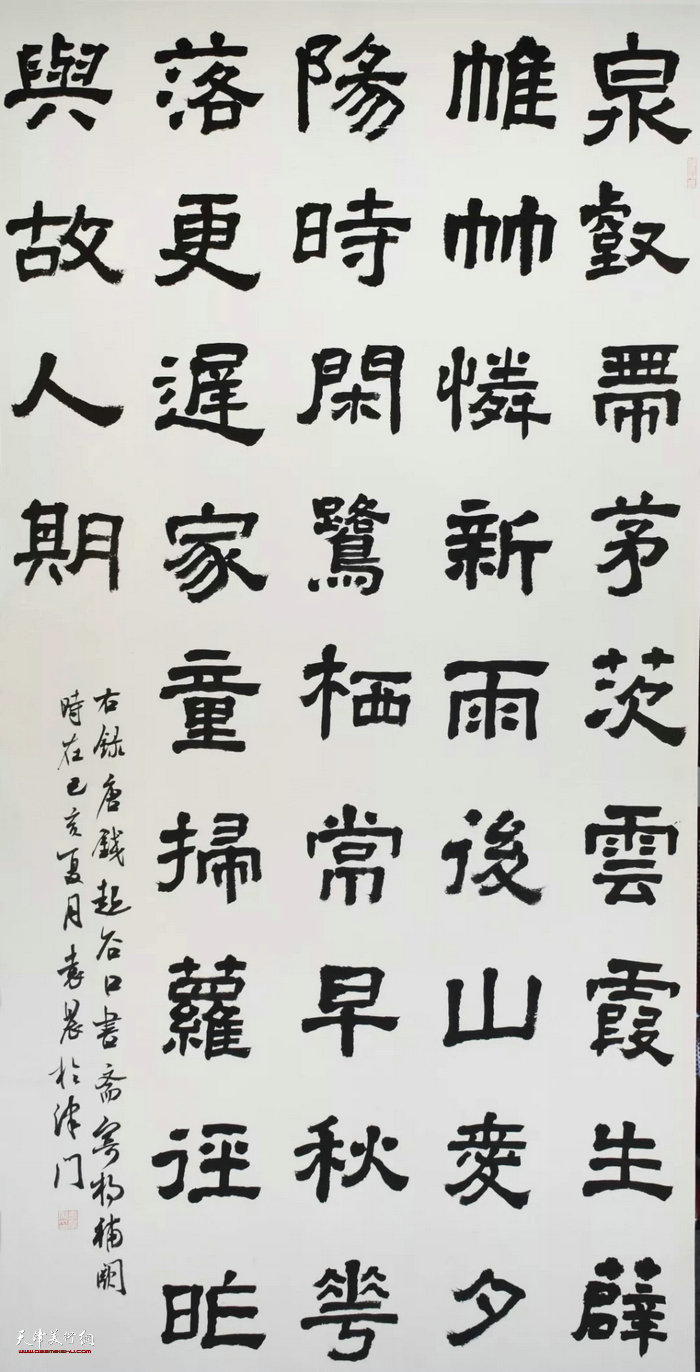 泉壑帶茅茨雲霞生薜
帷竹憐新雨後山愛夕
陽時閑鷺栖常早秋華
落更遲家童掃蘿徑昨
與故人期
右錄唐錢起谷口書斋寄楊補闕
時在己亥夏月袁晨於津门
天津美术网